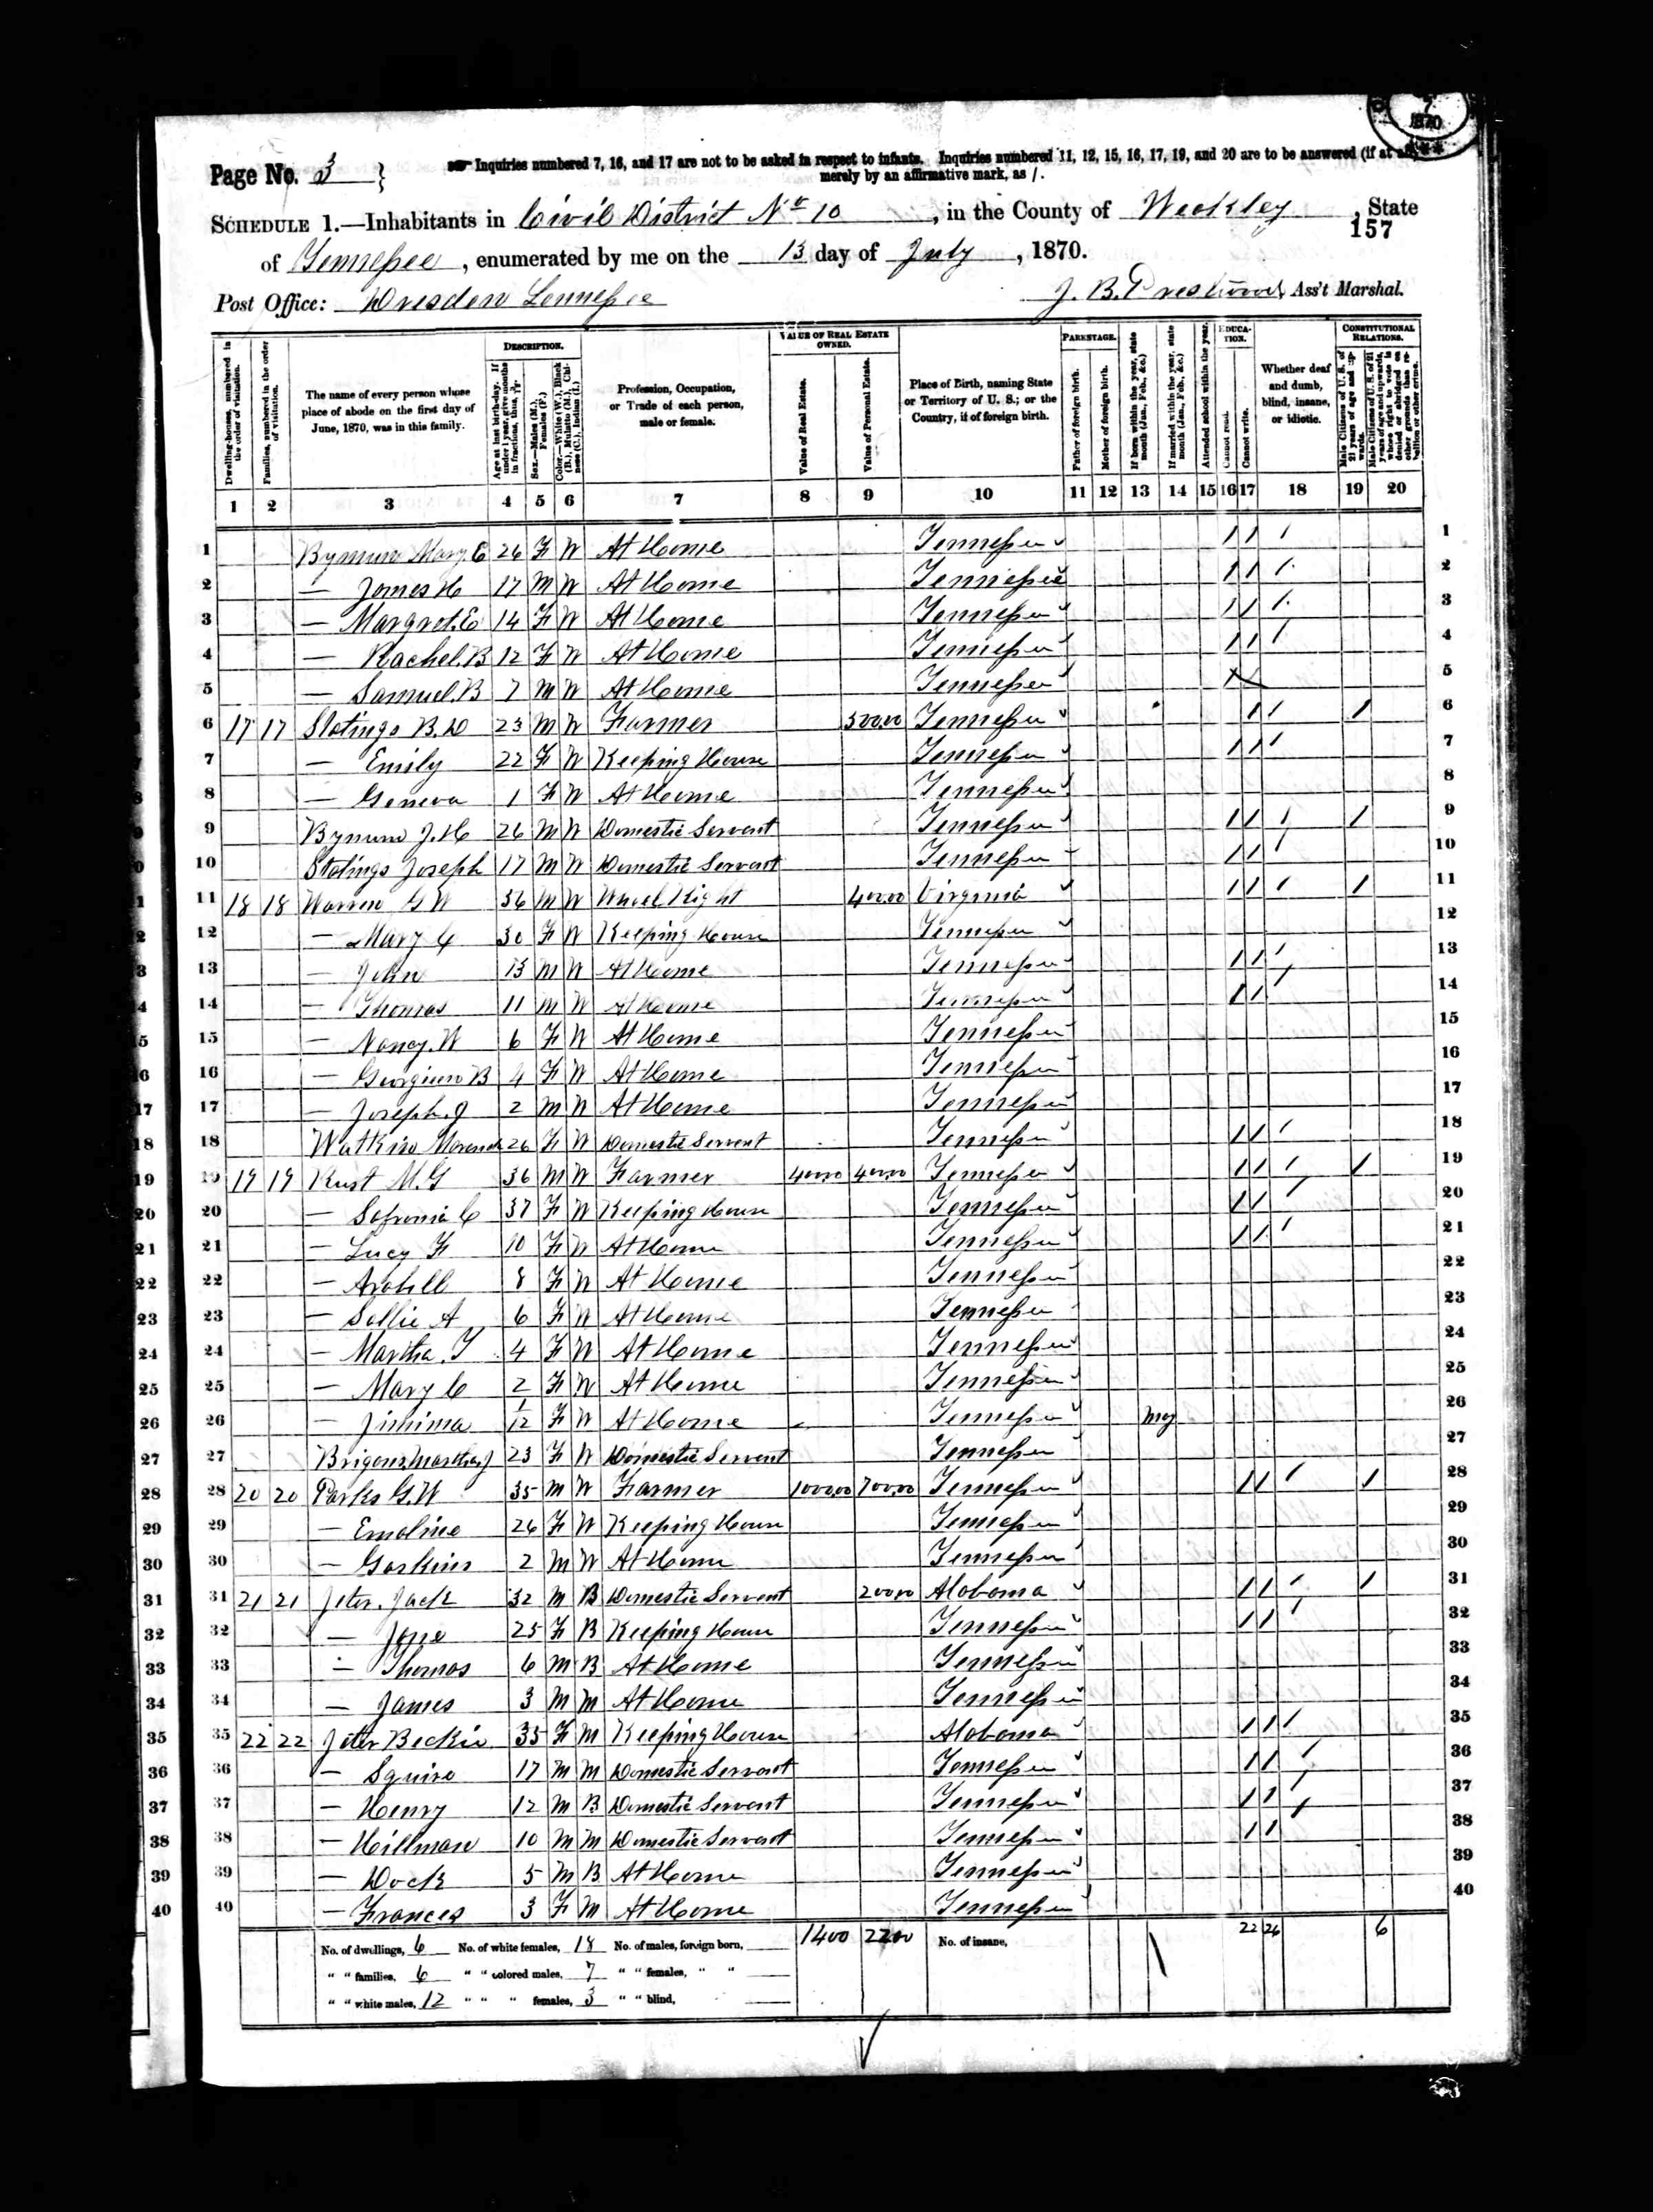 7
1870
Page No. 3 } Inquiries numbered 7, 16, and 17 are not to be asked in respect to infants. Inquiries numbered 11, 12, 15, 16, 17, 19, and 20 are to be answered (if at all)
merely by an affirmative mark, as /.
SCHEDULE 1.—Inhabitants in Civil District No 10, in the County of Weakley, State
157
of Tennessee, enumerated by me on the 13 day of July, 1870.
Post Office: Dresden Tennessee J. B. Ass't Marshal.
DESCRIPTION. VALUE OF REAL ESTATE OWNED. PARENTAGE. EDUCATION. CONSTITUTIONAL RELATIONS.
Dwelling-houses, numbered in the order of visitation.
Families, numbered in the order of visitation.
The name of every person whose place of abode on the first day of June, 1870, was in this family.
Age at last birth-day. If under 1 year, give months in fractions, thus,
Sex.—Males (M.), Females (F.)
Color.—White (W.), Black (B.), Mulatto (M.), Chinese (C.), Indian (I.)
Profession, Occupation, or Trade of each person, male or female.
Value of Real Estate.
Value of Personal Estate.
Place of Birth, naming State or Territory of U. S.; or the Country, if of foreign birth.
Father of foreign birth.
Mother of foreign birth.
If born within the year, state month (Jan., Feb., &c.)
If married within the year, state month (Jan., Feb., &c.)
Attended school within the year.
Cannot read.
Cannot write.
Whether deaf and dumb, blind, insane, or idiotic.
Male Citizens of U. S. of 21 years of age and upwards.
Male Citizens of U. S. of 21 years of age and upwards, whose right to vote is denied or abridged on other grounds than rebellion or other crime.
1 2 3 4 5 6 7 8 9 10 11 12 13 14 15 16 17 18 19 20
1 Bynum Mary C 26 F W At Home Tennessee / / / 1
2 — James H 17 M W At Home Tennessee / / / 2
3 — Margret E 14 F W At Home Tennessee / / / 3
4 — Rachel B 12 F W At Home Tennessee / / / 4
5 — Samuel B 7 M W At Home Tennessee 5
6 17 17 Stolings B. D 23 M W Farmer 500.00 Tennessee / / / 6
7 — Emily 22 F W Keeping House Tennessee / / / 7
8 — Geneva 1 F W At Home Tennessee 8
9 Bynum J. H 26 M W Domestic Servant Tennessee / / / / 9
10 Stolings Joseph 17 M W Domestic Servant Tennessee / / / 10
11 18 18 Warren G W 36 M W Wheel Right 400.00 Virginia / / / / 11
12 — Mary C 30 F W Keeping House Tennessee 12
13 — John 13 M W At Home Tennessee / / / 13
14 — Thomas 11 M W At Home Tennessee / / / 14
15 — Nancy. W 6 F W At Home Tennessee 15
16 — B 4 F W At Home Tennessee 16
17 — Joseph. J 2 M W At Home Tennessee 17
18 Watkins 26 F W Domestic Servant Tennessee / / / 18
19 19 19 Rust M. G 36 M W Farmer 400.00 400.00 Tennessee / / / / 19
20 — Sofronia C 37 F W Keeping House Tennessee / / / 20
21 — Lucy F 10 F W At Home Tennessee / / / 21
22 — 8 F W At Home Tennessee 22
23 — Sallie A 6 F W At Home Tennessee 23
24 — Martha. T 4 F W At Home Tennessee 24
25 — Mary C 2 F W At Home Tennessee 25
26 — Jimima 1/12 F W At Home Tennessee May 26
27 Martha J 23 F W Domestic Servant Tennessee 27
28 20 20 Parks G. W 35 M W Farmer 1000.00 700.00 Tennessee / / / / 28
29 — Emoline 26 F W Keeping House Tennessee 29
30 — Gaskins 2 M W At Home Tennessee 30
31 21 21 Jeter. Jack 32 M B Domestic Servant 200.00 Alabama / / / / 31
32 — Jane 25 F B Keeping House Tennessee / / / 32
33 — Thomas 6 M B At Home Tennessee 33
34 — James 3 M M At Home Tennessee 34
35 22 22 Jeter Beckie 35 F M Keeping House Alabama / / / 35
36 — Squire 17 M M Domestic Servant Tennessee / / / 36
37 — Henry 12 M B Domestic Servant Tennessee / / / 37
38 — Hillman 10 M M Domestic Servant Tennessee / / / 38
39 — Dock 5 M B At Home Tennessee 39
40 — Frances 3 F M At Home Tennessee 40
No. of dwellings, 6 No. of white females, 18 No. of males, foreign born, 1400 2200 No. of insane, 22 26 6
" " families, 6 " " colored males, 7 " " females, " "
" " white males, 12 " " " females, 3 " " blind,